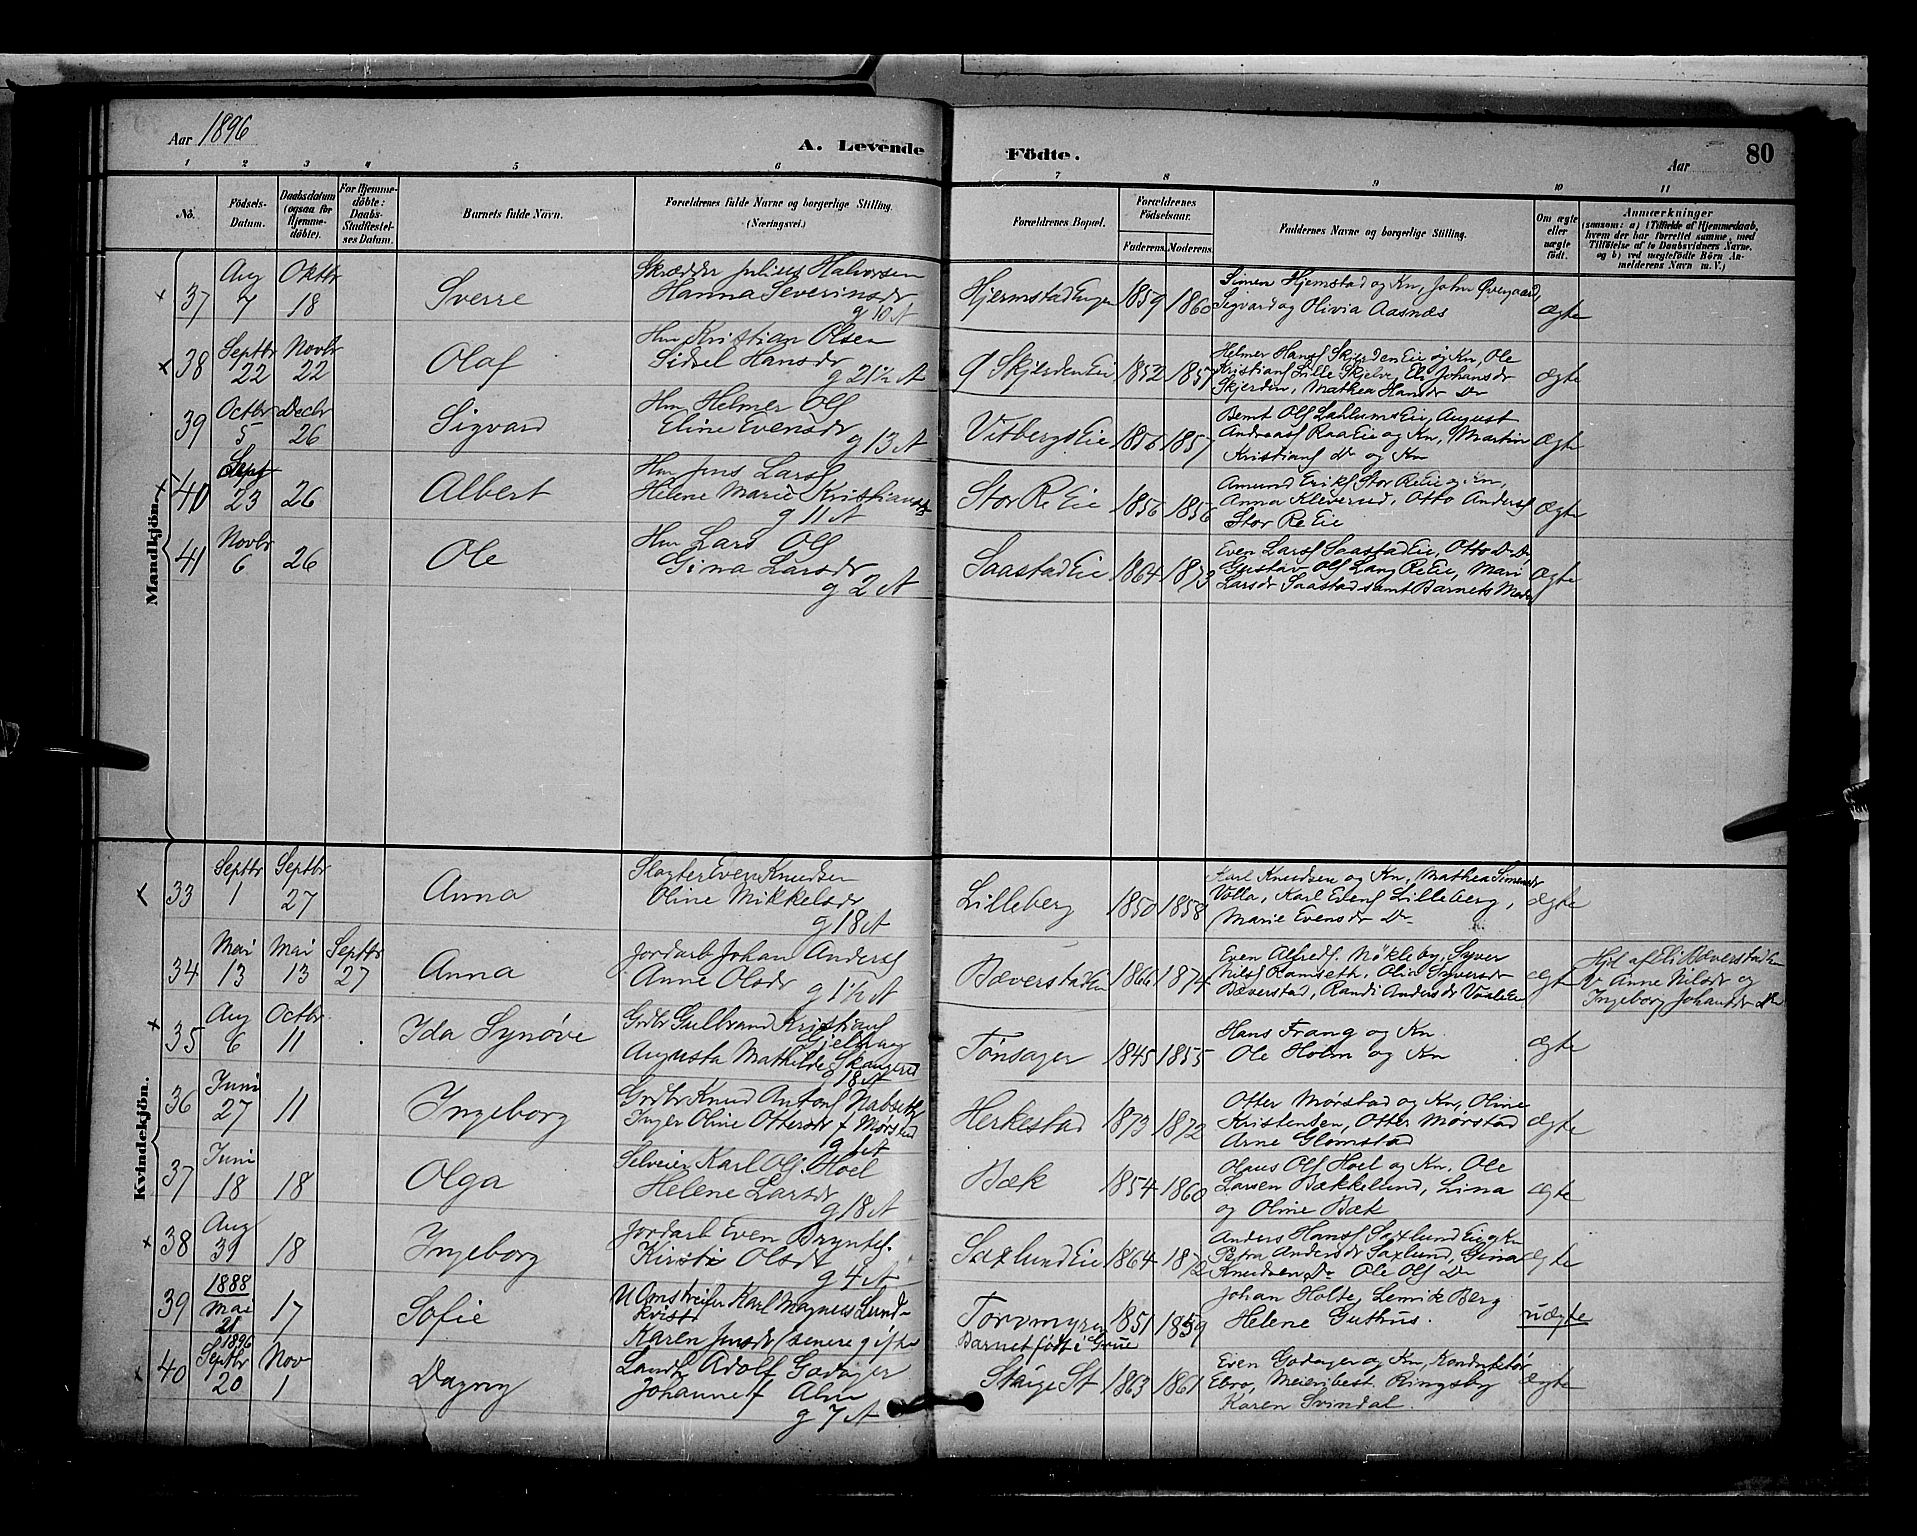 Aar 1896
A. Levende Födte.
Aar
80
1 2 3 4 5 6 7 8 9 10 11
No.
Födsels-Datum.
Daabsdatum (ogsaa for Hjemme-döbte).
For Hjemme-döbte: Daabs-Stadfæstel-ses Datum.
Barnets fulde Navn.
Forældrenes fulde Navne og borgerlige Stilling.
(Næringsvei.)
Forældrenes Bopæl.
Forældrenes Födselsaar.
Faderens. Moderens.
Faddernes Navne og borgerlige Stilling.
Om ægte eller uægte födt.
Anmærkninger
(saasom: a) i Tilfælde af Hjemmedaab, hvem der har forrettet samme, med Tilföielse af to Daabsvidners Navne, og b) ved uægtefödte Börn An-melderens Navn m. V.)
Mandkjön.
37 Aug 7 Oktbr 18 Sverre
Skrædder Julius Halvorsen
Hanna Severinsdr
g 10 A
Hjermstadengen 1859 1860
Simen Hjemstad og Kn, John Øvergaard,
Sigvard og Olivia Aasnæs
ægte
38 Septbr 22 Novbr 22 Olaf
Hm Kristian Olsen
Sidsel Hansdr
g 21 1/2 A
Ø Skjerden Eie 1852 1857
Helmer Hansf Skjerden Eie og Kn, Ole
Kristiansf Lille Skjelve, Eli Johansdr
Skjerden, Mathea Hansdr Do
ægte
39 Octbr 5 Decbr 26 Sigvard
Hm Helmer Olf
Eline Evensdr
g 13 A
Vitbergs Eie 1856 1857
Bernt Olf Lahlums Eie, August
Andreasf Raa Eie og Kn, Martin
Kristiansf Do og Kn
ægte
40 Sept 23 26 Albert
Hm Jens Larsf
Helene Marie Kristiansdr
g 11 A
Stor Re Eie 1856 1856
Amund Eriksf Stor Re Eie og Kn,
Anna Kleverud, Otto Andersf
Stor Re Eie
ægte
41 Novbr 6 26 Ole
Hm Lars Olf
Gina Larsdr
g 2 A
Saastad Eie 1864 1873
Even Larsf Saastad Eie, Otto Do Do,
Gustav Olf Lang Re Eie, Mari
Larsdr Saastad samt Barnets Moder
ægte
Kvindekjön.
33 Septbr 1 Septbr 27 Anna
Slagter Even Knudsen
Oline Mikkelsdr
g 18 A
Lilleberg 1850 1858
Karl Knudsen og Kn, Mathea Simensdr
Volla, Karl Evensf Lilleberg,
Marie Evensdr Do
ægte
34 Mai 13 Mai 13 Septbr 27 Anna
Jordarb Johan Andersf
Anne Olsdr
g 1 1/2 A
Bæverstad Eie 1866 1874
Even Alfredsf. Møkleby, Syver
Nilsf Ramseth, Olia Syversdr
Bæverstad, Randi Andersdr Vaale Eie
ægte
Hjd af Eli Bæverstad Eie
Anne Nilsdr og
Ingeborg Johansdr
35 Aug 6 Octbr 11 Ida Synøve
Grdbr Gulbrand Kristiansf
Gjelhaug
Augusta Mathilde Skaugerud
g 18 A
Tønsager 1845 1855
Hans Frang og Kn
Ole Holm og Kn
ægte
36 Juni 27 11 Ingeborg
Grdbr Knud Antonsf Nabseth
Inger Oline Ottersdr Mørstad
g 6 A
Herkestad 1873 1872
Otter Mørstad og Kn, Oline
Kristensen, Otter Mørstad
Arne Glomstad
ægte
37 Juni 18 18 Olga
Selveier Karl Olf Hoel
Helene Larsdr
g 18 A
Bæk 1854 1860
Olaus Olf Hoel og Kn. Ole
Larsen Bækkelund, Lina
og Oline Bæk
ægte
38 Aug 31 18 Ingeborg
Jordarb Even Bryntesf.
Kirsti Olsdr
g 4 A
Saxlund Eie 1864 1872
Anders Hansf Saxlund Eie og Kn
Petra Andersdr Saxlund, Gina
Knudsen Do Ole Olf Do
ægte
39 1888 Mai 21 17 Sofie
Omstreifer Karl Magnus Lund-
kvist
Karen Jensdr (senere gifte)
Torvmyren 1851 1859
Barnet født i Grue
Johan Holte, Lemik Berg
Helene Guthus.
uægte
40 1896 Septbr 20 Nov 1 Dagny
Landh Adolf Godager
Johannef Alm
g 7 A
Stange St 1863 1861
Even Godager og Kn, Konduktør
Ebro, Meieribest. Ringsby
Karen Svindal.
ægte